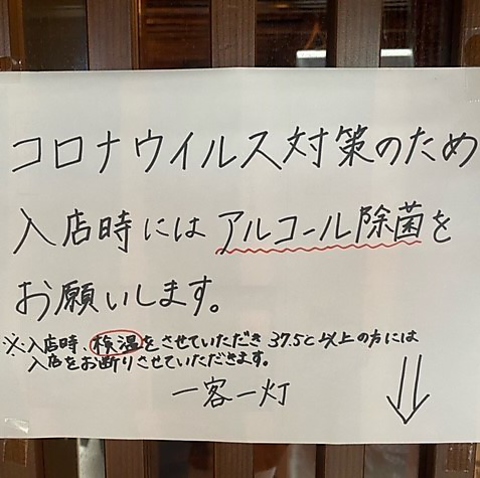 コロナウイルス対策のため
入店時にはアルコール除菌を
お願いします。
※入店時、検温をさせていただき 37.5℃以上の方には
入店をお断りさせていただきます。
一客一灯